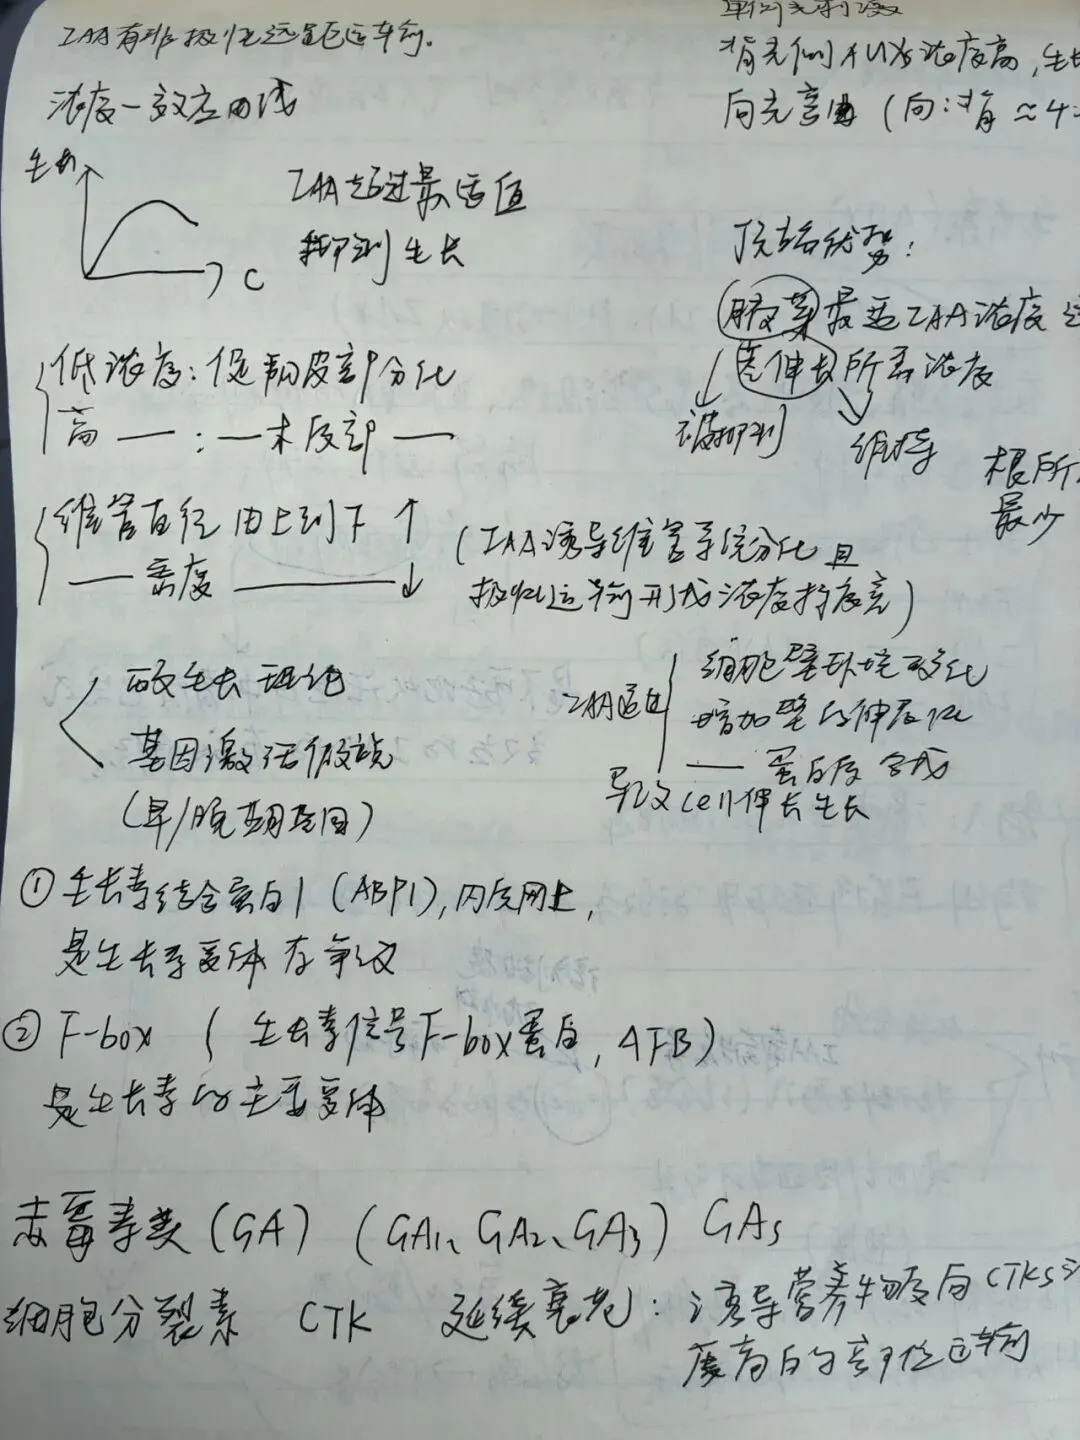 IAA有非极性远距运输.
浓度-效应曲线
生长
C
IAA超过最适值
抑制生长
低浓度:促韧皮部分化
高——:——木质部——
维管直径由上到下↑
——密度————↓
(IAA诱导维管系统分化且
极性运输形成浓度梯度)
酸生长理论
基因激活假说
(早/晚期基因)
IAA通过
细胞壁环境酸化
增加壁的伸展性
——蛋白质合成
导致cell伸长生长
单侧光刺激
背光侧AUX浓度高,生
向光弯曲(向:背≈4
顶端优势:
腋芽最适IAA浓度
茎伸长所需浓度
被抑制
维持
根所
最少
①生长素结合蛋白1(ABP1),内质网上,
是生长素受体存争议
②F-box(生长素信号F-box蛋白,AFB)
是生长素的主要受体
赤霉素类(GA)(GA1、GA2、GA3)GAs
细胞分裂素 CTK 延缓衰老:诱导营养物质向CTKs
度高的部位运输